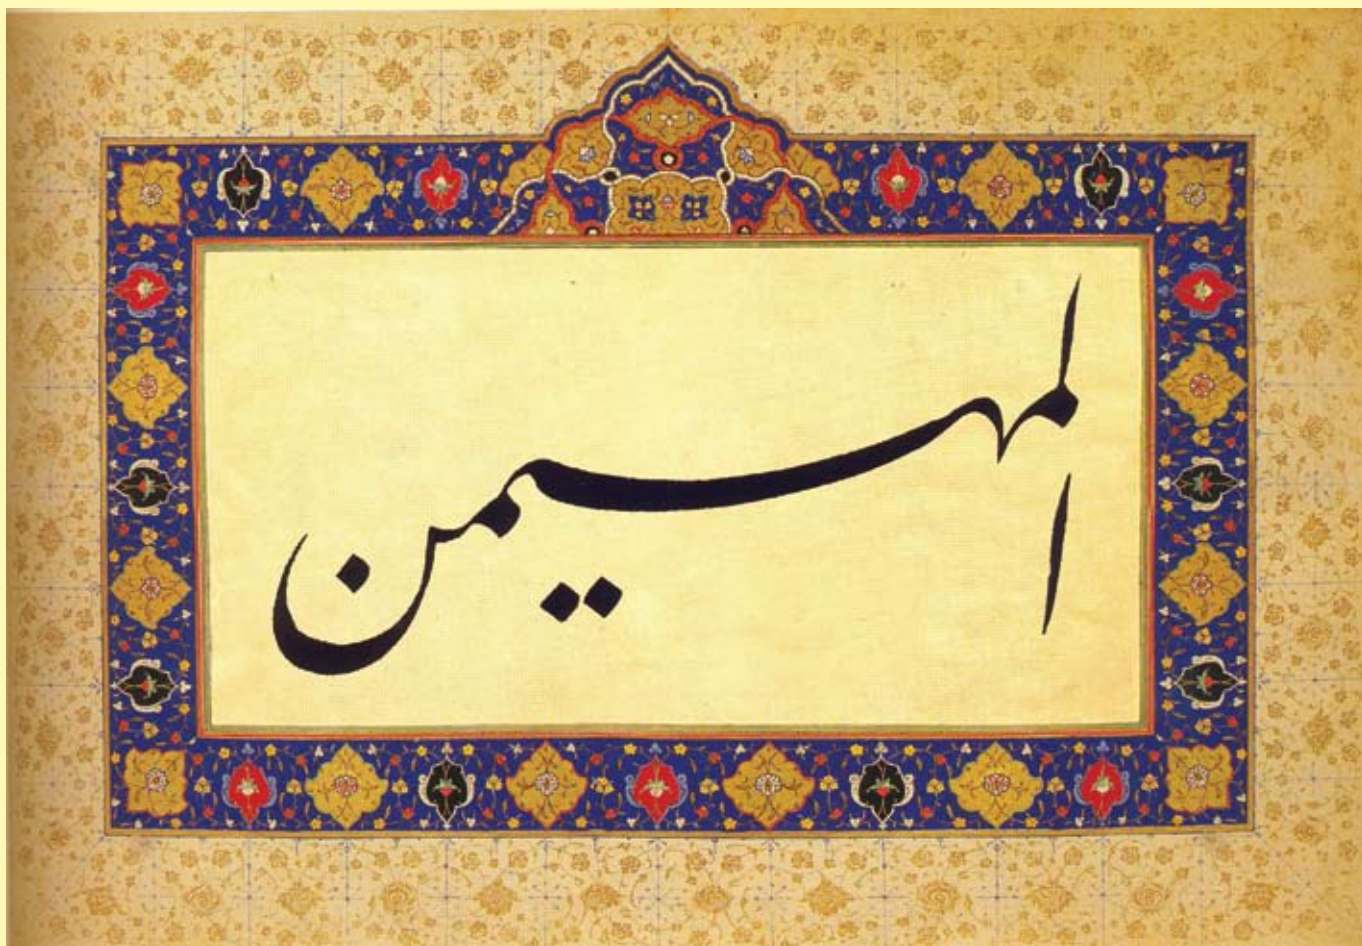 المهيمن